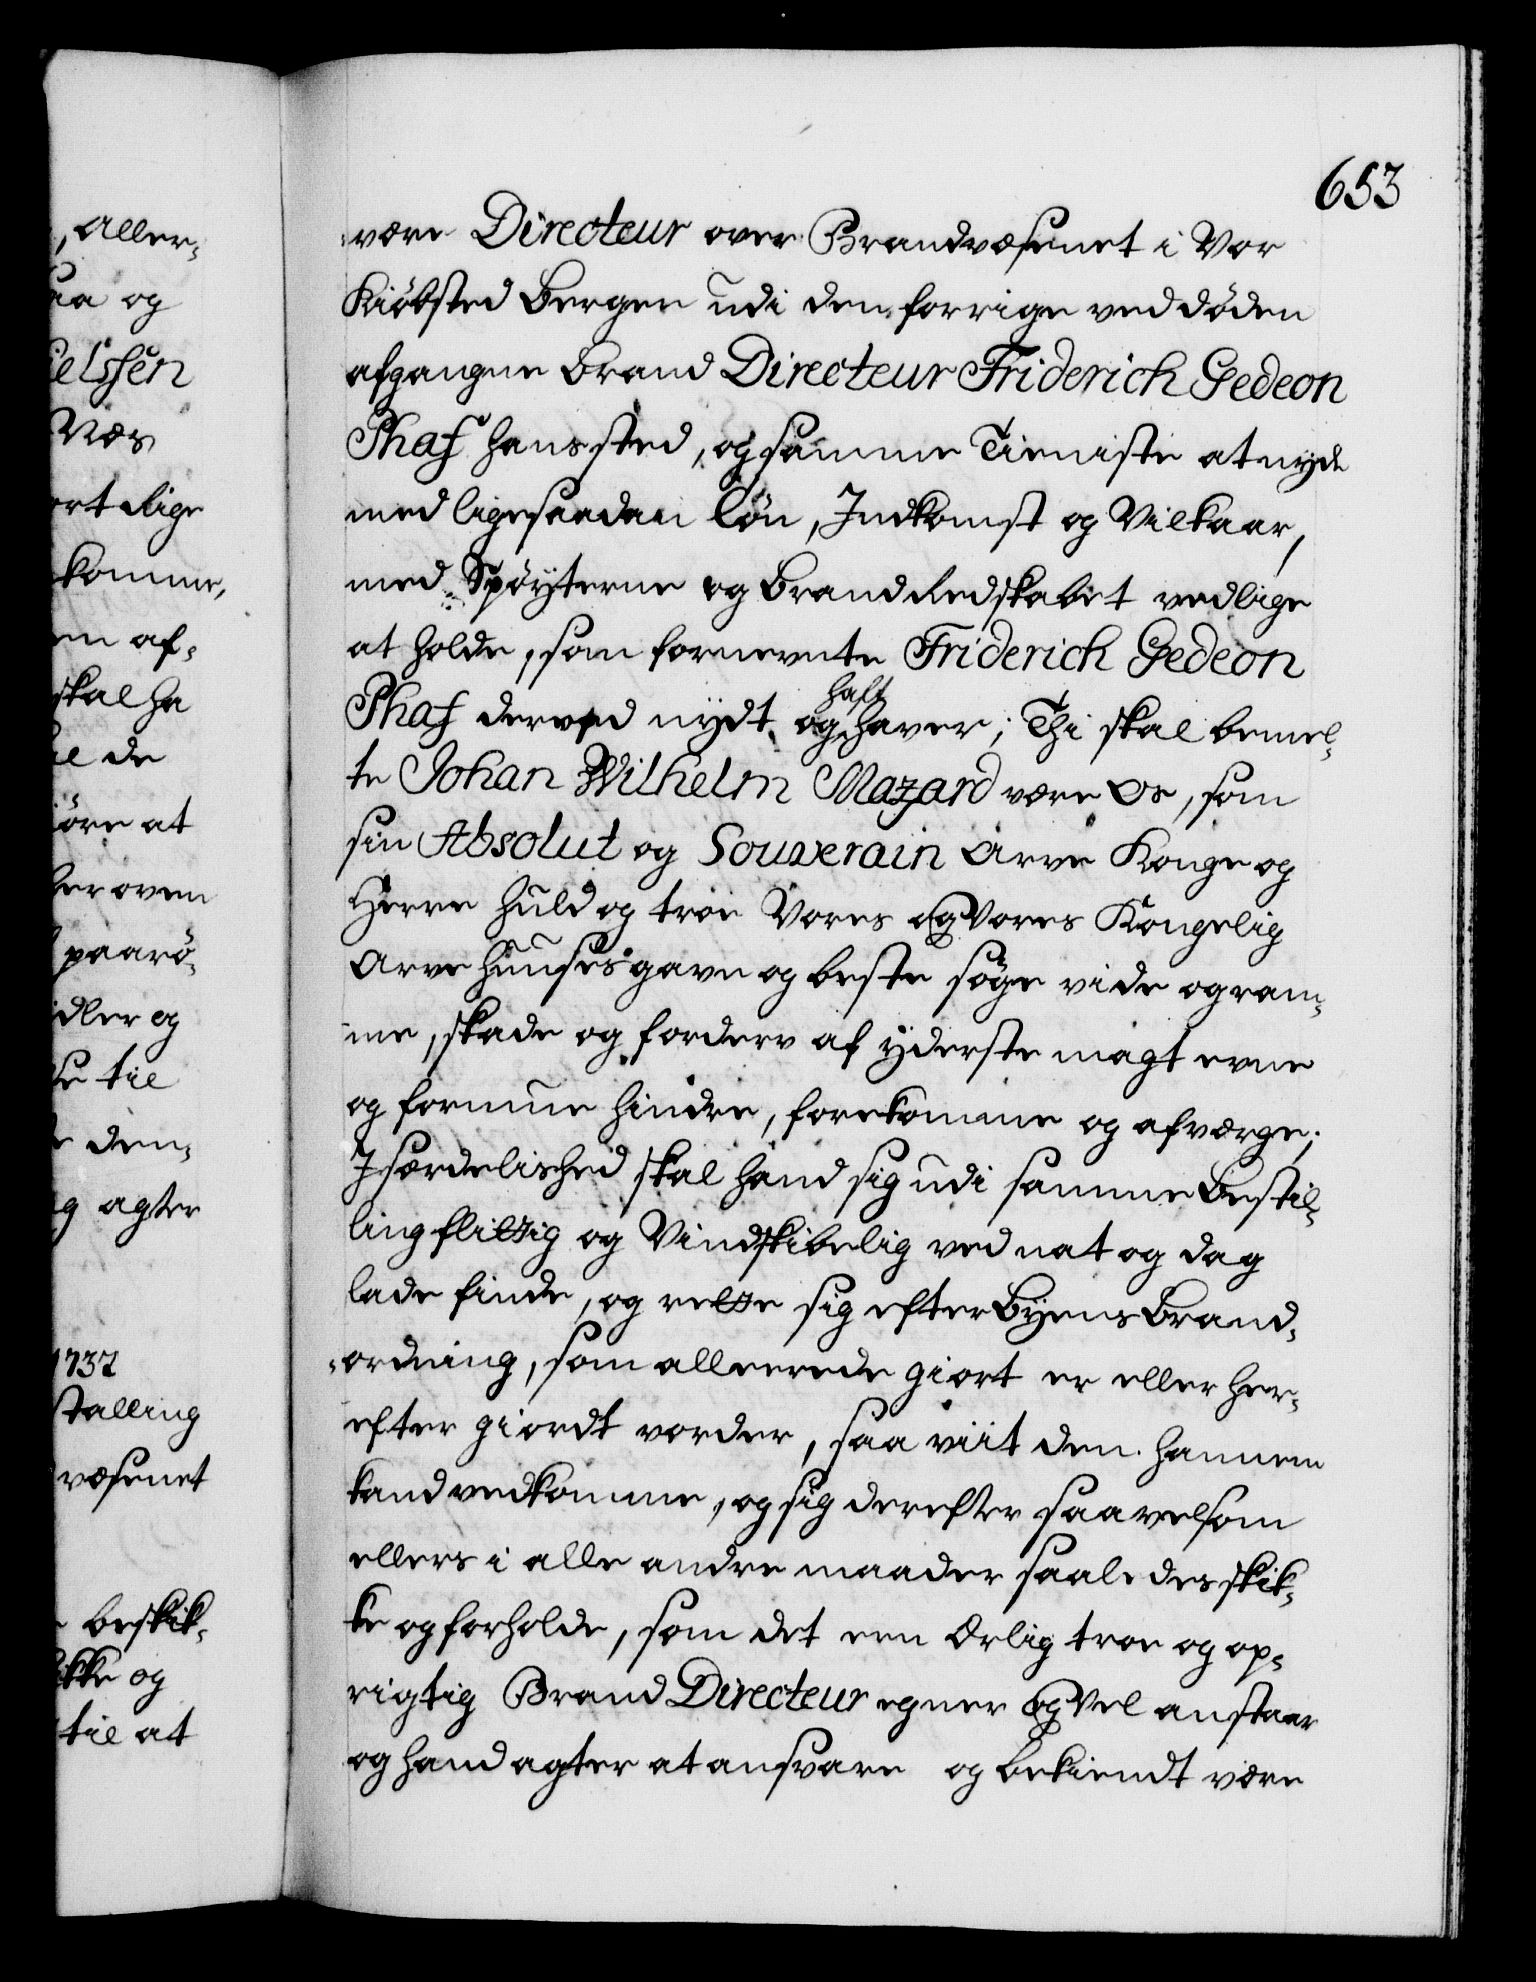 653
være Directeur over Brandvæsenet i Vor
Kiöbsted Bergen udi den forrige ved döden
afgangne Brand Directeur Friderich Gedeon
Phaf hans sted, og samme Tieniste at nyde
med ligesaadan Lön, Indkomst og Vilkaar,
med Spöyterne og Brand Redskabet vedlige
at holde, som fornevnte Friderich Gedeon
haft
Phaf derved nydt og haver; Thi skal bemel-
te Johan Wilhelm Mazard være Os, som
sin Absolut og Souverain Arve Konge og
Herre huld og troe Vores og Vores Kongelig
Arve Huuses gavn og beste söge vide og ram-
me, skade og forderv af yderste magt evne
og formue hindre, forekomme og afværge;
Isærdelished skal hand sig udi samme Bestil-
ling flittig og Vindskibelig ved nat og dag
lade finde, og rette sig efter Byens Brand-
ordning, som allerede giort er eller her-
efter giordt vorder, saa viit den hannem
kand vedkomme, og sig derefter saavelsom
ellers i alle andre maader saaledes skik-
ke og forholde, som det een Ærlig troe og op-
rigtig Brand Directeur egner og Vel anstaar
og hand agter at ansvare og bekiendt være
, Aller-
aa og
elssen
Næs
ort lige
komme,
en af-
skal ha
el de
iöre at
her oven
paarö-
idler og
se til
den-
g agter
1737
stalling
væsenet
beskik-
ikke og
til at